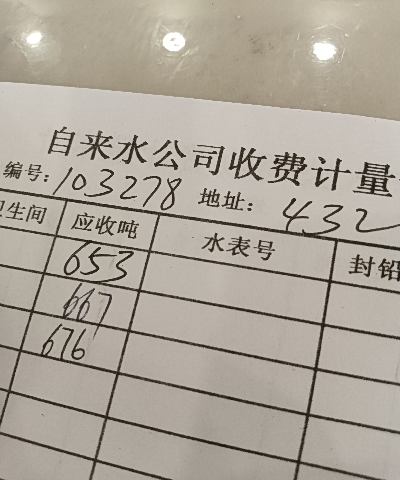 自来水公司收费计量
编号:103278 地址:432
卫生间 应收吨 水表号 封铅
653
667
676